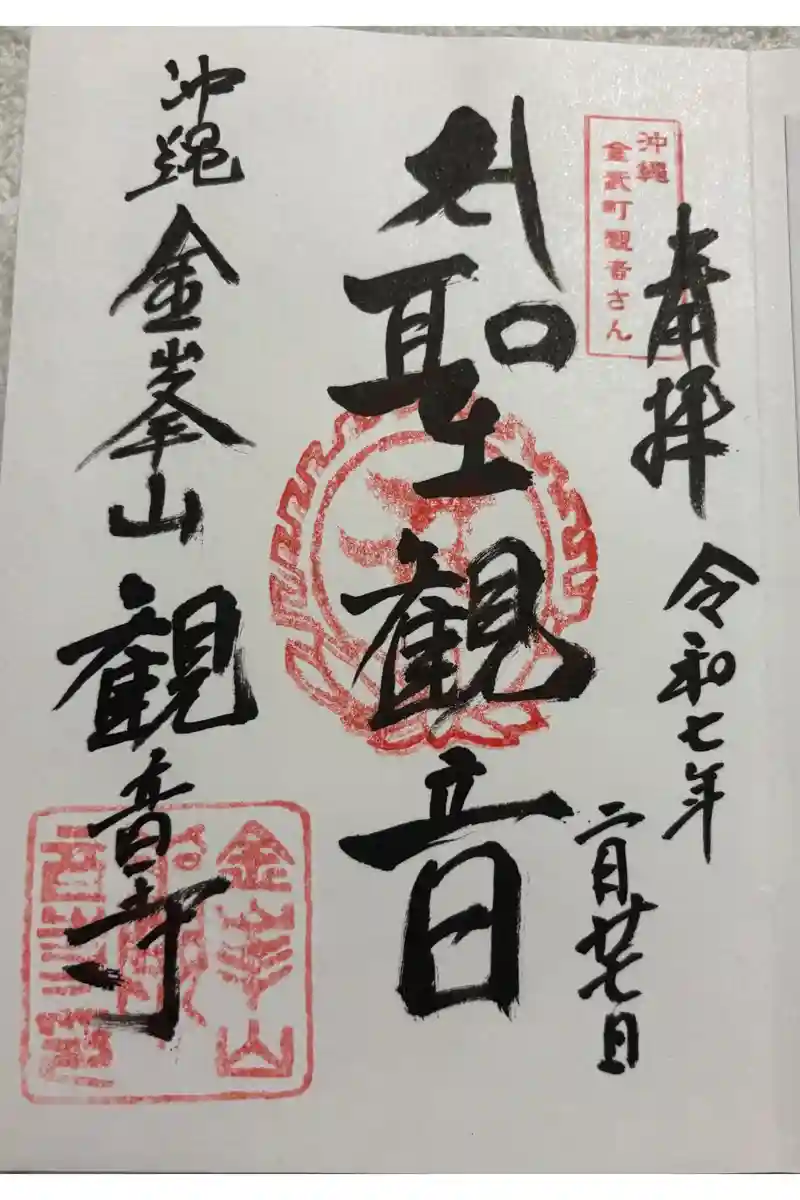 沖縄
金武町観音さん
奉拝
令和七年
二月廿七日
聖観音
沖縄
金峯山
観音寺
金峯山